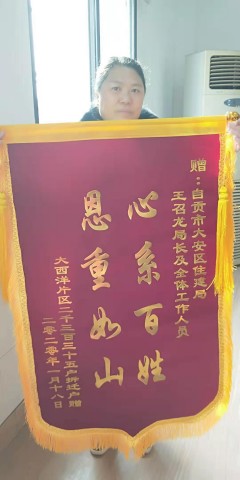 赠：自贡市大安区住建局
王召龙局长及全体工作人员
心系百姓
恩重如山
大西洋片区二千三百三十五户拆迁户赠
二零二零年一月十八日